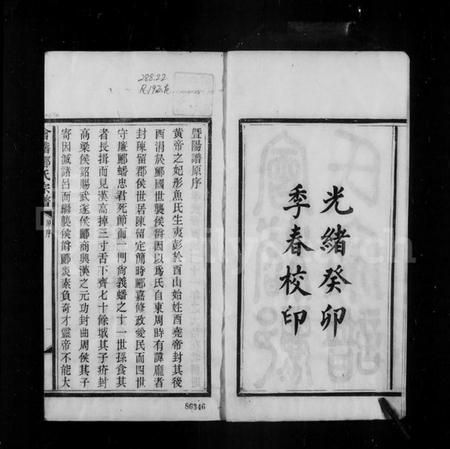 光緒癸卯
季春校印
暨陽譜原序
黃帝之妃彤魚氏生夷彭於酉山始姓酉堯帝封其後
酉涓於酈國世襲侯爵因以為氏自東周時有諱龐者
封陳留郡侯世居陳留定簡時酈嘉修政愛民而四世
守廉酈蟠忠君死節而一門尚義蟠之十一世孫食其
者長揖而見漢高掉三寸舌下齊七十餘城其子疥封
高梁侯詔賜武遂侯酈商興漢之元功封曲周侯其子
寄因滅諸呂而續襲侯爵酈炎素負奇才靈帝不能大
會稽酈氏宗譜
原序
一
288.22
86346